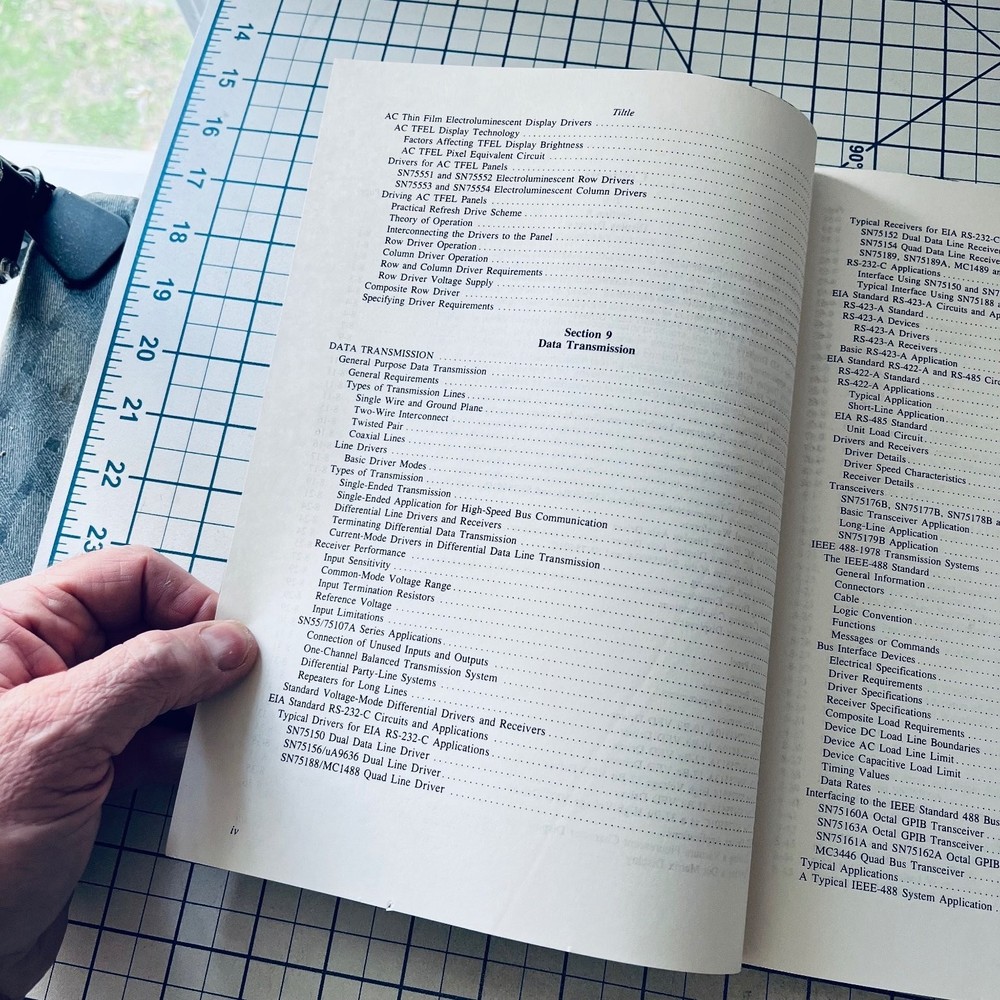 14
15
16
17
18
19
20
21
22
23
90°
Tiltle
AC Thin Film Electroluminescent Display Drivers
AC TFEL Display Technology
Factors Affecting TFEL Display Brightness
AC TFEL Pixel Equivalent Circuit
Drivers for AC TFEL Panels
SN75551 and SN75552 Electroluminescent Row Drivers
SN75553 and SN75554 Electroluminescent Column Drivers
Driving AC TFEL Panels
Practical Refresh Drive Scheme
Theory of Operation
Interconnecting the Drivers to the Panel
Row Driver Operation
Column Driver Operation
Row and Column Driver Requirements
Row Driver Voltage Supply
Composite Row Driver
Specifying Driver Requirements
Section 9
Data Transmission
DATA TRANSMISSION
General Purpose Data Transmission
General Requirements
Types of Transmission Lines
Single Wire and Ground Plane
Two-Wire Interconnect
Twisted Pair
Coaxial Lines
Line Drivers
Basic Driver Modes
Types of Transmission
Single-Ended Transmission
Single-Ended Application for High-Speed Bus Communication
Differential Line Drivers and Receivers
Terminating Differential Data Transmission
Current-Mode Drivers in Differential Data Line Transmission
Receiver Performance
Input Sensitivity
Common-Mode Voltage Range
Input Termination Resistors
Reference Voltage
Input Limitations
SN55/75107A Series Applications
Connection of Unused Inputs and Outputs
One-Channel Balanced Transmission System
Differential Party-Line Systems
Repeaters for Long Lines
Standard Voltage-Mode Differential Drivers and Receivers
EIA Standard RS-232-C Circuits and Applications
Typical Drivers for EIA RS-232-C Applications
SN75150 Dual Data Line Driver
SN75156/uA9636 Dual Line Driver
SN75188/MC1488 Quad Line Driver
iv
Typical Receivers for EIA RS-232-C
SN75152 Dual Data Line Receiver
SN75154 Quad Data Line Receive
SN75189, SN75189A, MC1489 an
RS-232-C Applications
Interface Using SN75150 and SN7
Typical Interface Using SN75188
EIA Standard RS-423-A Circuits and Ap
RS-423-A Standard
RS-423-A Devices
RS-423-A Drivers
RS-423-A Receivers
Basic RS-423-A Application
EIA Standard RS-422-A and RS-485 Circ
RS-422-A Standard
RS-422-A Applications
Typical Application
Short-Line Application
EIA RS-485 Standard
Unit Load Circuit
Drivers and Receivers
Driver Details
Driver Speed Characteristics
Receiver Details
Transceivers
SN75176B, SN75177B, SN75178B
Basic Transceiver Application
Long-Line Application
SN75179B Application
IEEE 488-1978 Transmission Systems
The IEEE-488 Standard
General Information
Connectors
Cable
Logic Convention
Functions
Messages or Commands
Bus Interface Devices
Electrical Specifications
Driver Requirements
Driver Specifications
Receiver Specifications
Composite Load Requirements
Device DC Load Line Boundaries
Device AC Load Line Limit
Device Capacitive Load Limit
Timing Values
Data Rates
Interfacing to the IEEE Standard 488 Bus
SN75160A Octal GPIB Transceiver
SN75163A Octal GPIB Transceiver
SN75161A and SN75162A Octal GPIB
MC3446 Quad Bus Transceiver
Typical Applications
A Typical IEEE-488 System Application